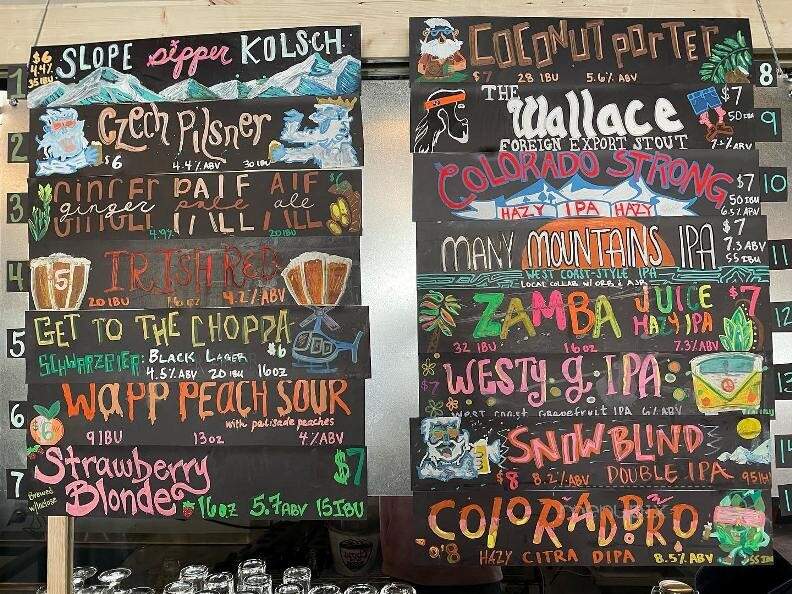 1
$6
4.4%
35 IBU
SLOPE sipper KOLSCH
2
Czech Pilsner
$6 4.4% ABV 30 IBU
3
GINGER PALE ALE
ginger pale ale
4.9% 20 IBU
4
5 IRISH RED
20 IBU 16oz 4.2% ABV
5
GET TO THE CHOPPA
SCHWARZBIER: BLACK LAGER $6
4.5% ABV 20 IBU 16oz
6
WAPP PEACH SOUR
with palisade peaches
$6
9 IBU 13oz 4% ABV
7
Strawberry $7
Blonde
Brewed
w/lactose
16oz 5.7 ABV 15 IBU
8
COCONUT PORTER
$7 28 IBU 5.6% ABV
9
THE Wallace $7
50 IBU
FOREIGN EXPORT STOUT
10
COLORADO STRONG $7
50 IBU
HAZY IPA HAZY 6.5% ABV
11
MANY MOUNTAINS IPA $7
7.3 ABV
55 IBU
WEST COAST-STYLE IPA
LOCAL COLLAB W/
12
ZAMBA JUICE $7
HAZY IPA
32 IBU 16oz 7.3% ABV
$7 WESTY.g.IPA
west coast grapefruit IPA 6% ABV
SNOWBLIND
$8 8.2% ABV DOUBLE IPA 95 IBU
COLORADBRO
$8 HAZY CITRA DIPA 8.5% ABV 55 IBU